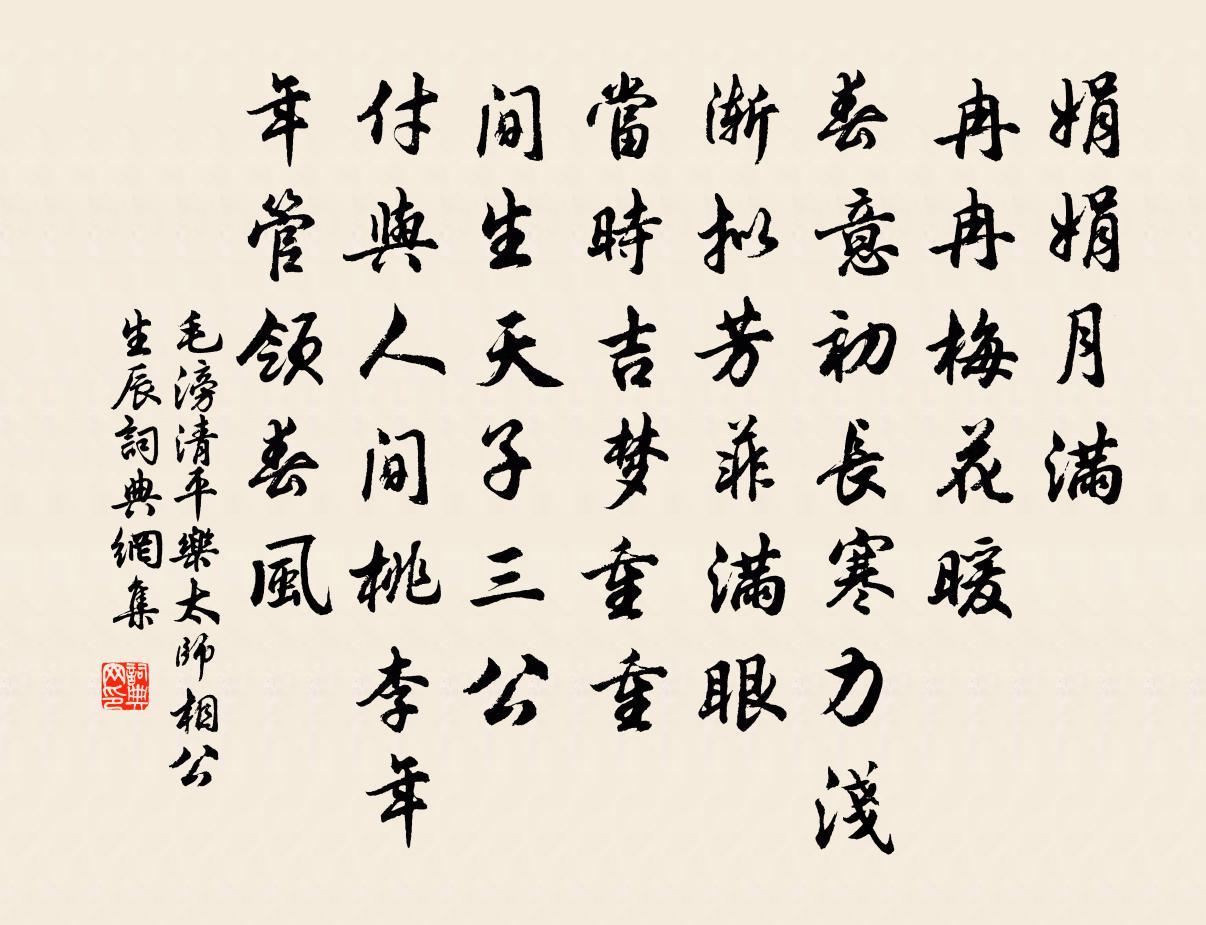 娟娟月滿
冉冉梅花暖
春意初長寒力淺
漸拟芳菲滿眼
當時吉梦重重
間生天子三公
付與人間桃李年
年管領春風
毛滂清平樂太師相公
生辰詞典網集
詞典网印